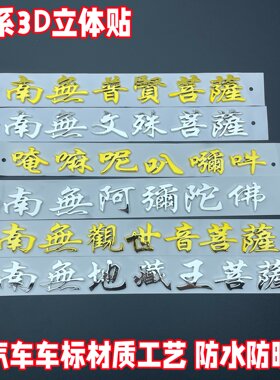 系3D立体贴
南無普賢菩薩
南無文殊菩薩
唵嘛呢叭嚩吽
南無阿彌陀佛
南無觀世音菩薩
南無地藏王菩薩
汽车车标材质工艺 防水防晒